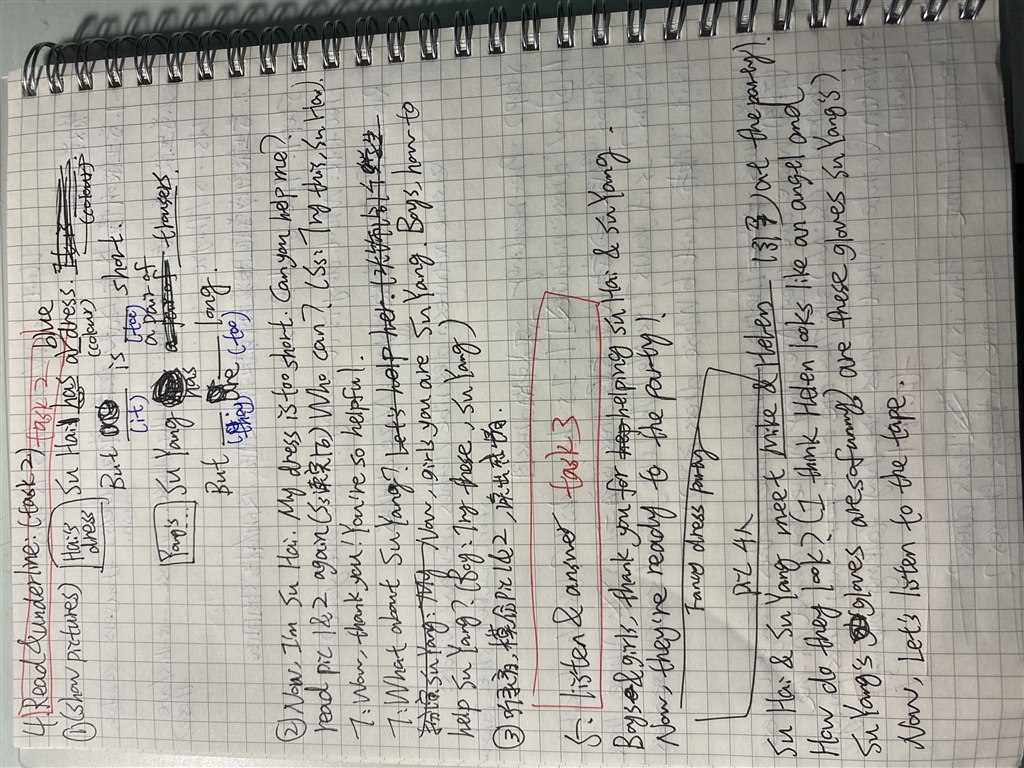 4. Read & underline. (task 2) task 2
① (show pictures)
Hai's dress
Su Hai has a blue dress.
(colour) (colour)
But is short.
(it) (too)
Yang's
Su Yang has a pair of trousers.
But are long.
(they) (too)
② Now, I'm Su Hai. My dress is too short. Can you help me?
read pic 1&2 again (Ss读文b) Who can? (Ss: Try this, Su Hai).
T: Wow, thank you! You're so helpful.
T: What about Su Yang? Let's help her.
Su Yang: My Now, girls you are Su Yang. Boys, how to
help Su Yang? (Boy: Try these, Su Yang)
③ 分角色, 模仿pic 1&2,
5. Listen & answer task 3
Boys & girls, thank you for helping Su Hai & Su Yang.
Now, they're ready to the party!
Fancy dress party
pic 4人
Su Hai & Su Yang meet Mike & Helen at the party!
How do they look? (I think Helen looks like an angel and
Su Yang's gloves are so funny) are these gloves Su Yang's?
Now, Let's listen to the tape.